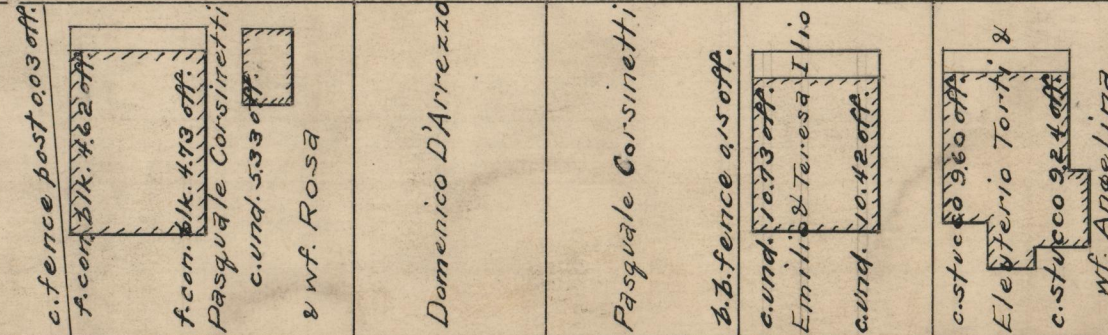 c. fence post 0.03 off.
f. con. blk. 4.62 off.
f. con. blk. 4.73 off.
Pasquale Corsinetti
c. und. 5.33 off.
& wf. Rosa
Domenico D'Arrezzo
Pasquale Corsinetti
b.b. fence 0.15 off.
c. und. 10.73 off.
Emilio & Teresa Ilio
c. und. 10.42 off.
c. stucco 9.60 off.
Eleuterio Torti &
c. stucco 9.24 off.
wf. Angelina